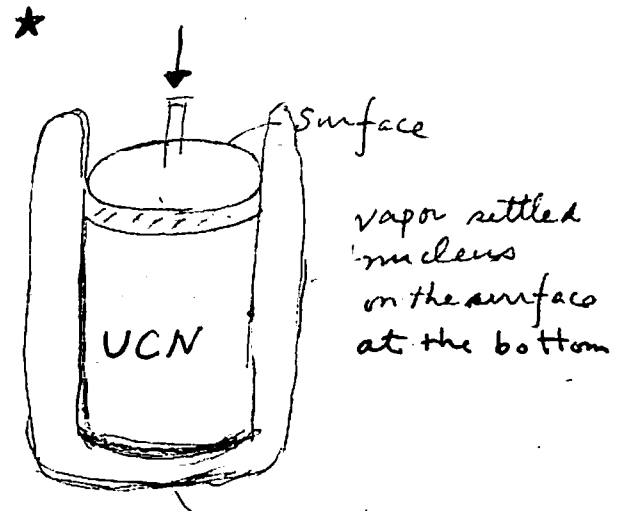 surface
vapor settled
nucleus
on the surface
at the bottom
UCN